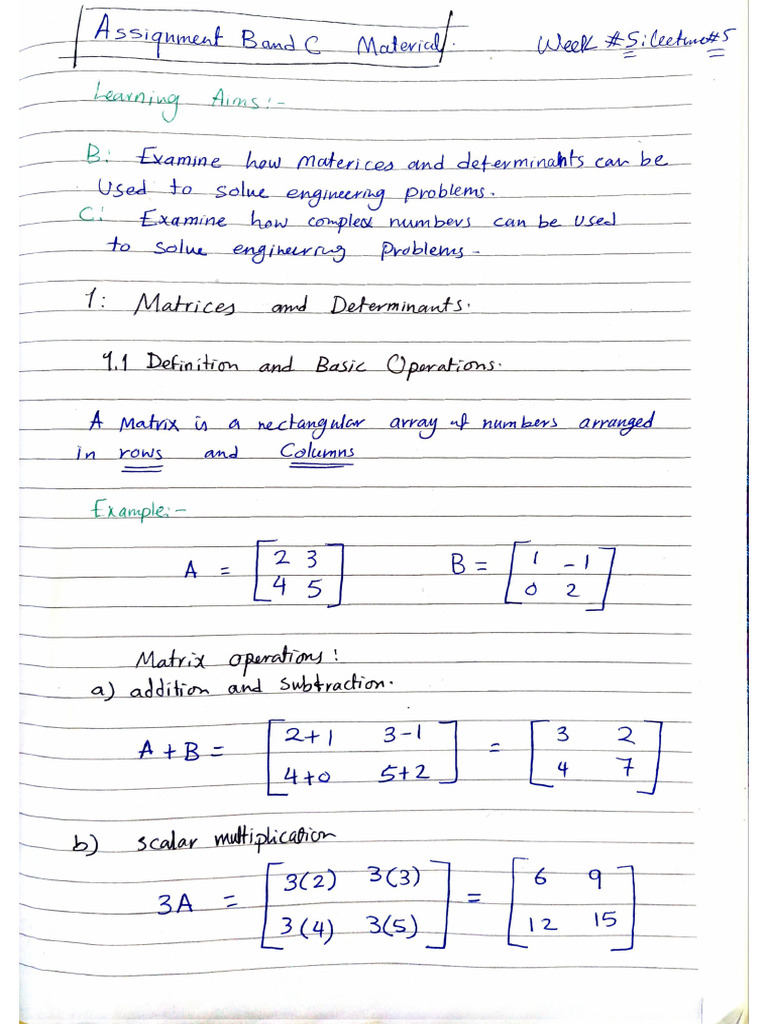 Assignment B and C Material.
Week #5: Lecture #5
Learning Aims:-
B: Examine how materices and determinahts can be
used to solve engineering problems.
C: Examine how complex numbers can be used
to solve engineering problems-
1: Matrices and Determinants.
1.1 Definition and Basic Operations.
A Matrix is a rectangular array of numbers arranged
in rows and Columns
Example:-
A = [2 3
4 5]
B = [1 -1
0 2]
Matrix operations:
a) addition and subtraction.
A+B = [2+1 3-1
4+0 5+2] = [3 2
4 7]
b) scalar multiplication
3A = [3(2) 3(3)
3(4) 3(5)] = [6 9
12 15]